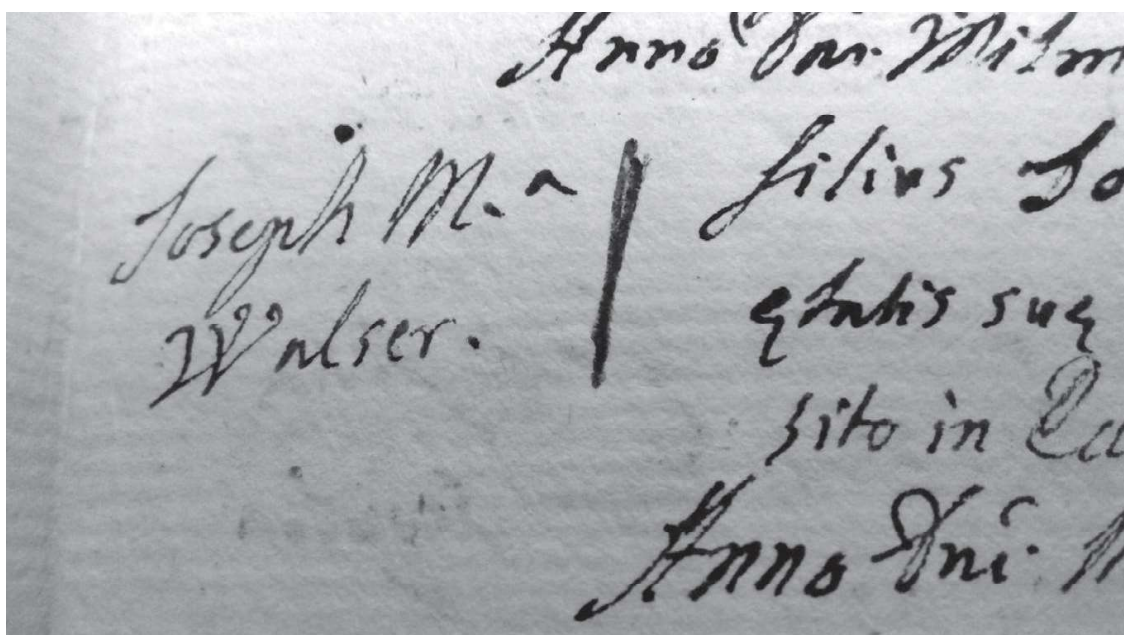 Anno Dni. Millm
Joseph M.ª
Walser.
filius Jo
ętatis suę
sito in Ca
Anno Dni. M